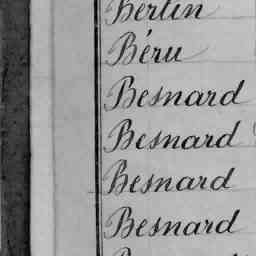 Bertin
Béru
Besnard
Besnard
Besnard
Besnard